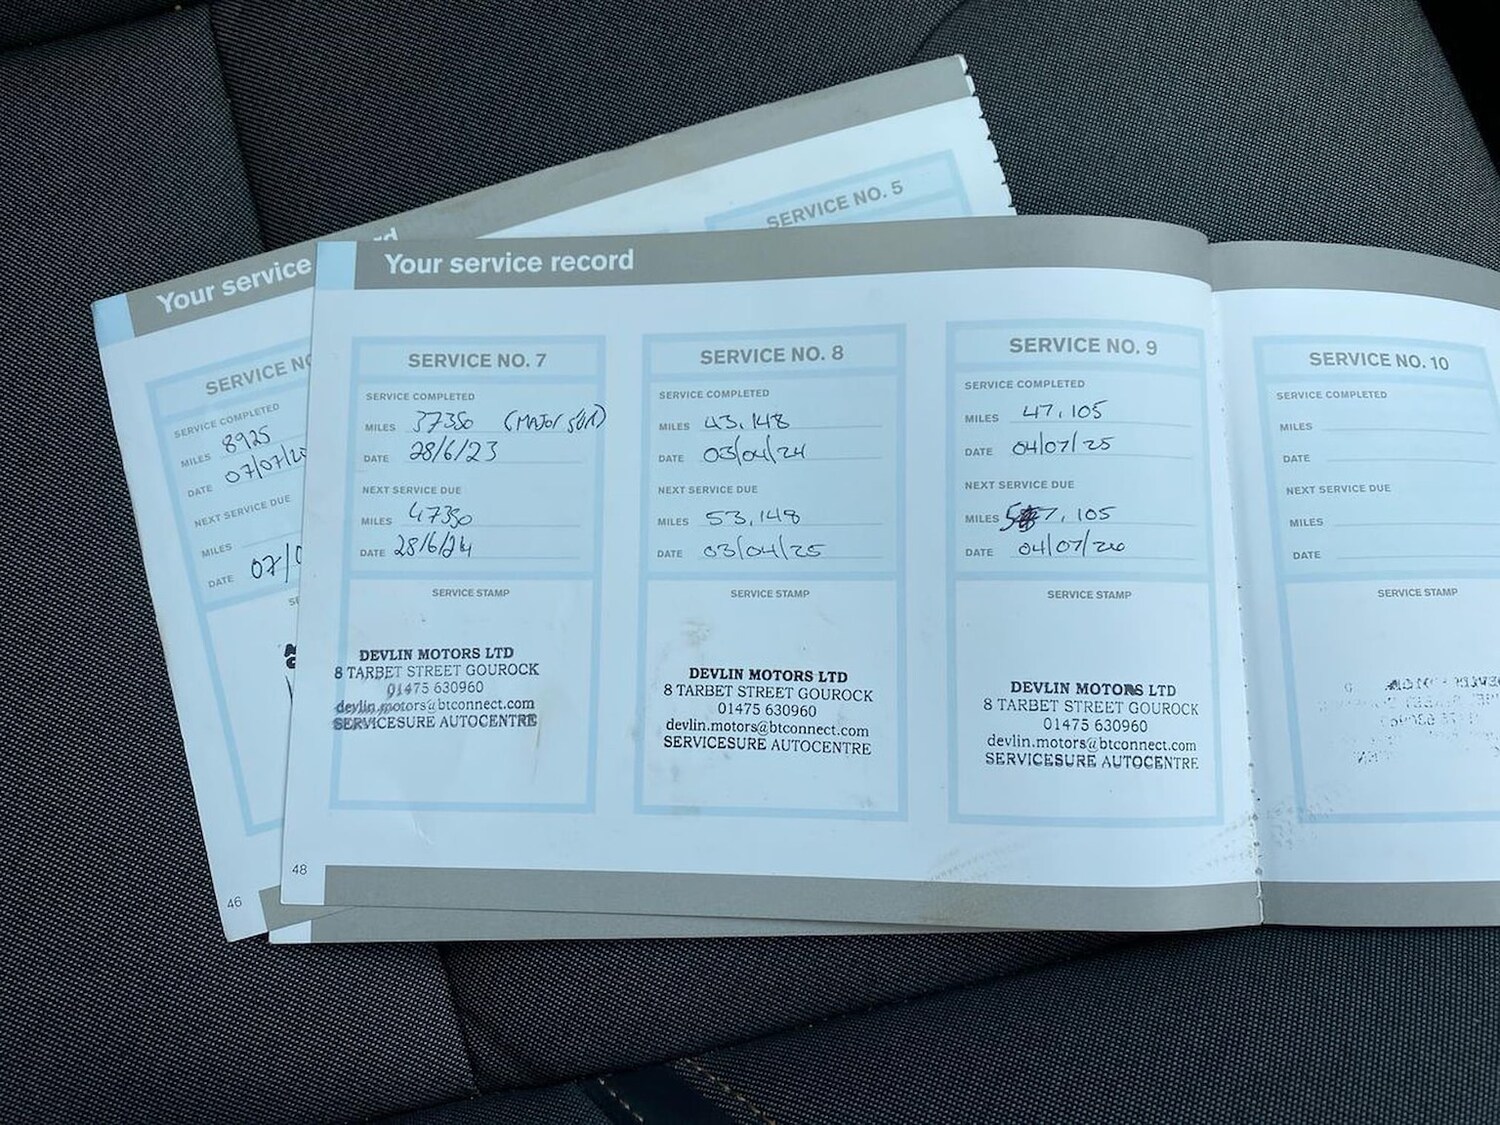 SERVICE NO. 5
Your service
rd
SERVICE NO
SERVICE COMPLETED
MILES 8925
DATE 07/07/20
NEXT SERVICE DUE
MILES
DATE 07/0
46
Your service record
SERVICE NO. 7
SERVICE COMPLETED
MILES 37350 (MAJOR SER)
DATE 28/6/23
NEXT SERVICE DUE
MILES 47350
DATE 28/6/24
SERVICE STAMP
DEVLIN MOTORS LTD
8 TARBET STREET GOUROCK
01475 630960
devlin.motors@btconnect.com
SERVICESURE AUTOCENTRE
48
SERVICE NO. 8
SERVICE COMPLETED
MILES 43,148
DATE 03/04/24
NEXT SERVICE DUE
MILES 53,148
DATE 03/04/25
SERVICE STAMP
DEVLIN MOTORS LTD
8 TARBET STREET GOUROCK
01475 630960
devlin.motors@btconnect.com
SERVICESURE AUTOCENTRE
SERVICE NO. 9
SERVICE COMPLETED
MILES 47,105
DATE 04/07/25
NEXT SERVICE DUE
MILES 57,105
DATE 04/07/26
SERVICE STAMP
DEVLIN MOTORS LTD
8 TARBET STREET GOUROCK
01475 630960
devlin.motors@btconnect.com
SERVICESURE AUTOCENTRE
SERVICE NO. 10
SERVICE COMPLETED
MILES
DATE
NEXT SERVICE DUE
MILES
DATE
SERVICE STAMP